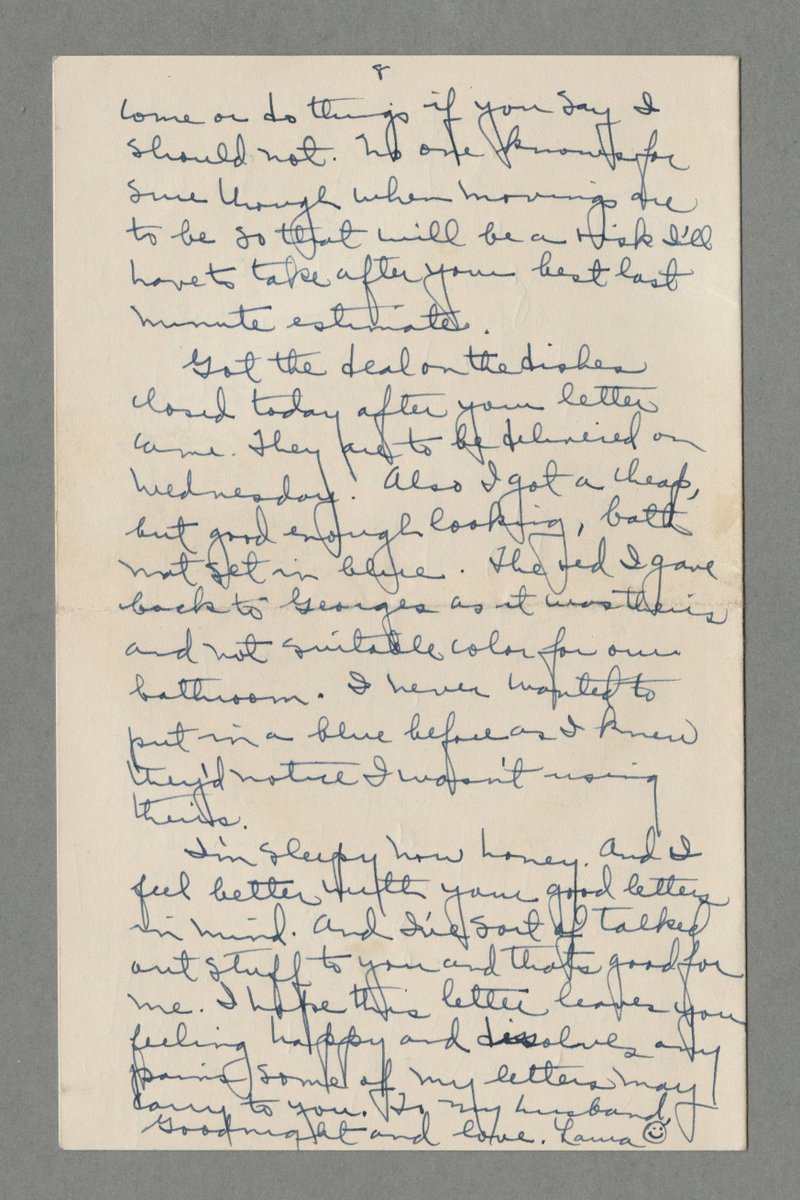 8
come or do things if you say I
should not. No one knows for
sure though when movings are
to be so that will be a risk I'll
have to take after your best last
minute estimate.
Got the deal on the dishes
closed today after your letter
came. They are to be delivered on
Wednesday. Also I got a cheap,
but good enough looking, bath
mat set in blue. The red I gave
back to Georges as it was theirs
and not suitable color for our
bathroom. I never wanted to
put in a blue before as I knew
they'd notice I wasn't using
theirs.
I'm sleepy now honey. And I
feel better with your good letters
in mind. And I've sort of talked
out stuff to you and thats good for
me. I hope this letter leaves you
feeling happy and dissolves any
pains some of my letters may
carry to you. To my husband,
Goodnight and love. Laura ☺